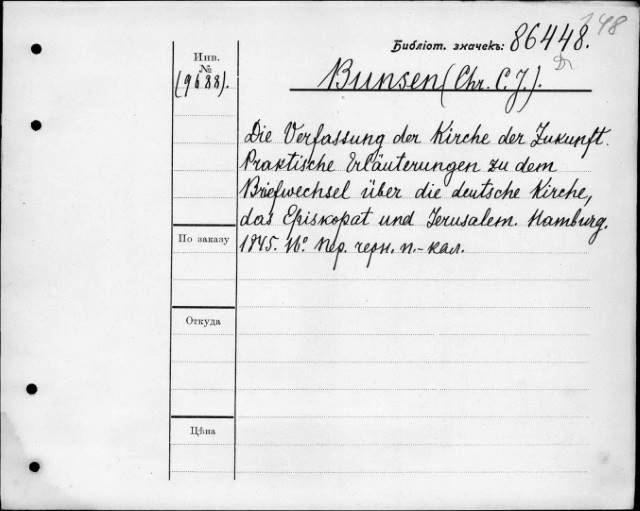 148
Библіот. значекъ: 86448.
Инв.
№
(9688).
Bunsen (Chr. C. J.).
Die Verfassung der Kirche der Zukunft.
Praktische Erläuterungen zu dem
Briefwechsel über die deutsche Kirche,
das Episkopat und Jerusalem. Hamburg.
1845. 16° Пер. черн. п.-кал.
По заказу
Откуда
Цѣна